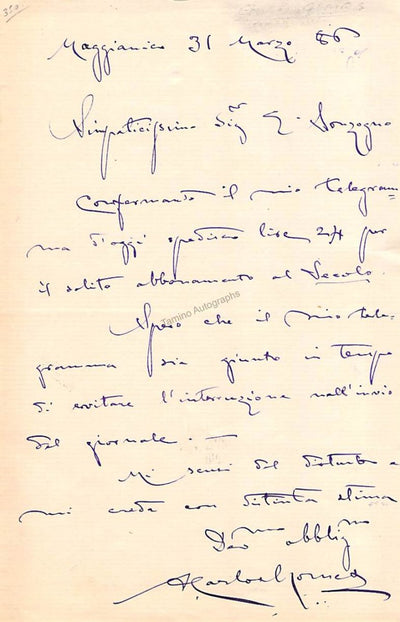 350
Maggianico 31 Marzo 86
Simpaticissimo Sigr E. Sonzogno
Confermando il mio telegram=
ma d'oggi spedisco lire 24 per
il solito abbonamento al Secolo.
Spero che il mio tele=
gramma sia giunto in tempo
di evitare l'interruzione nell'invio
del giornale. —
Mi scusi del disturbo e
mi creda con distinta stima
Devmo obbligmo
A Carlos Gomes
Tamino Autographs